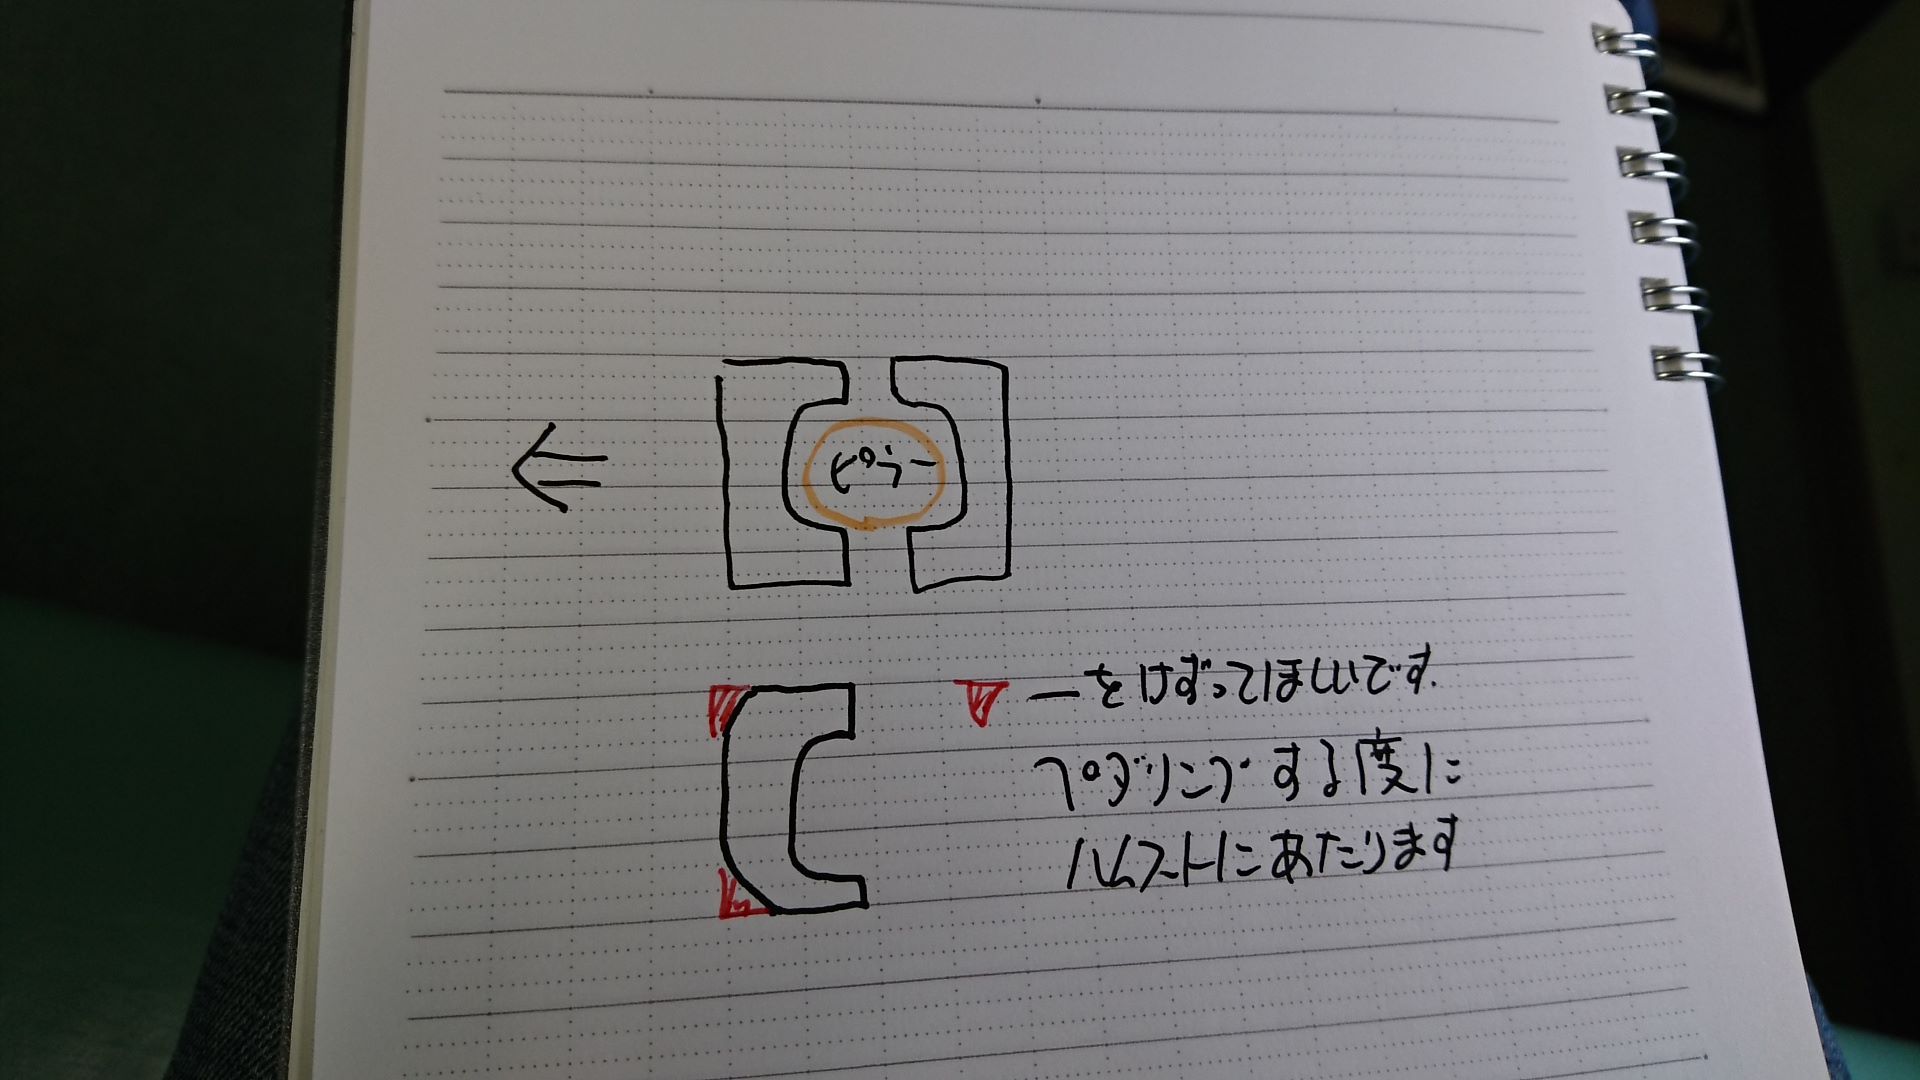 ピラー
ーをけずってほしいです.
ペダリングする度に
ハムストにあたります